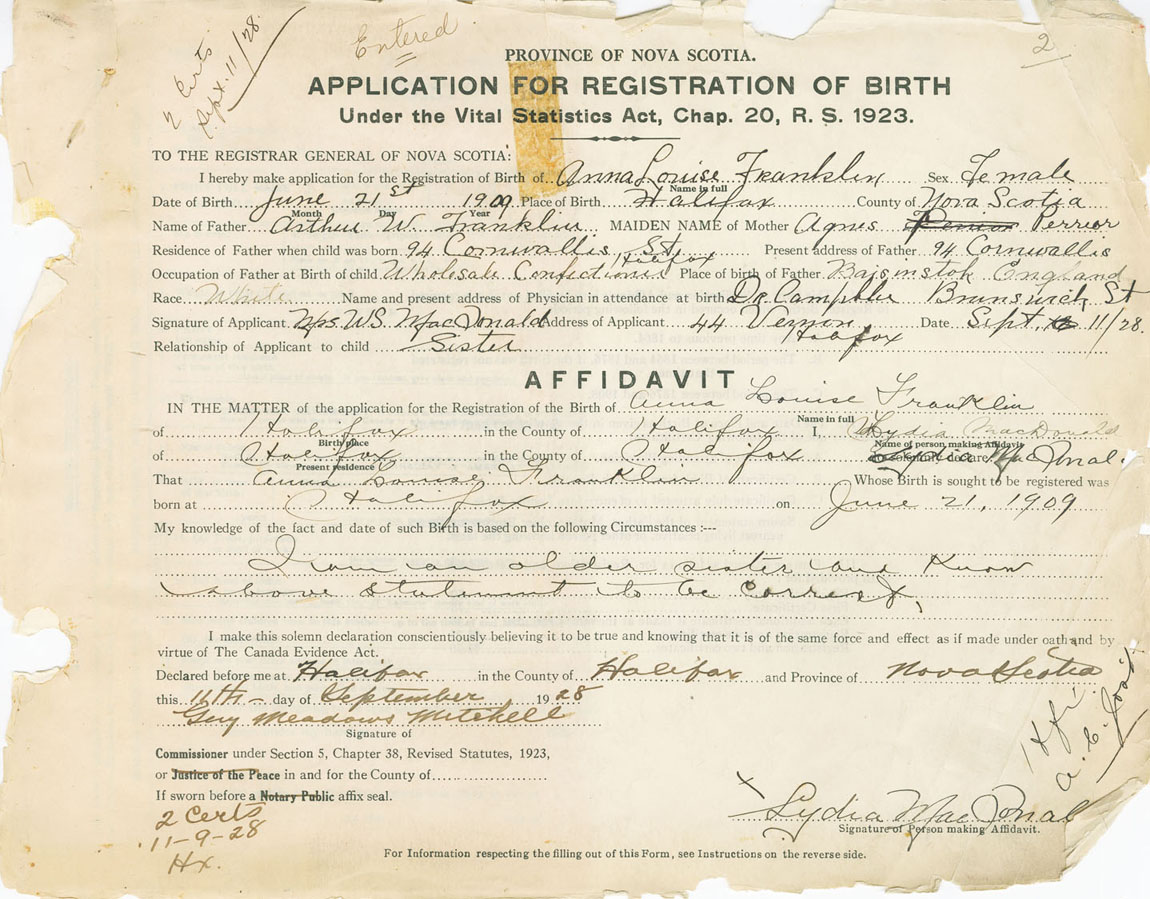 2 Certs
Sept. 11/28.
Entered
2
PROVINCE OF NOVA SCOTIA.
APPLICATION FOR REGISTRATION OF BIRTH
Under the Vital Statistics Act, Chap. 20, R. S. 1923.
TO THE REGISTRAR GENERAL OF NOVA SCOTIA:
I hereby make application for the Registration of Birth of Anna Louise Franklin Sex Female
Name in full
Date of Birth June 21st 1909 Place of Birth Halifax County of Nova Scotia
Month Day Year
Name of Father Arthur W. Franklin MAIDEN NAME of Mother Agnes Perrier
Residence of Father when child was born 94 Cornwallis St Halifax Present address of Father 94 Cornwallis
Occupation of Father at Birth of child Wholesale Confectioner Place of birth of Father England
Race White Name and present address of Physician in attendance at birth Dr. Campbell Brunswick St
Signature of Applicant Mrs WS MacDonald Address of Applicant 44 Vernon Halifax Date Sept. 11/28.
Relationship of Applicant to child Sister
AFFIDAVIT
IN THE MATTER of the application for the Registration of the Birth of Anna Louise Franklin
Name in full
of Halifax in the County of Halifax I, Lydia MacDonald
Birth place Name of person making Affidavit
of Halifax in the County of Halifax declare
Present residence
That Anna Louise Franklin Whose Birth is sought to be registered was
born at Halifax on June 21, 1909
My knowledge of the fact and date of such Birth is based on the following Circumstances :---
I am an older sister and Know
above statement to be correct,
I make this solemn declaration conscientiously believing it to be true and knowing that it is of the same force and effect as if made under oath and by
virtue of The Canada Evidence Act.
Declared before me at Halifax in the County of Halifax and Province of Nova Scotia
this 11th day of September 1928
Guy Meadows Mitchell
Signature of
Commissioner under Section 5, Chapter 38, Revised Statutes, 1923,
or Justice of the Peace in and for the County of
If sworn before a Notary Public affix seal.
2 Certs
11-9-28
Hx.
X Lydia MacDonald
Signature of Person making Affidavit.
For Information respecting the filling out of this Form, see Instructions on the reverse side.